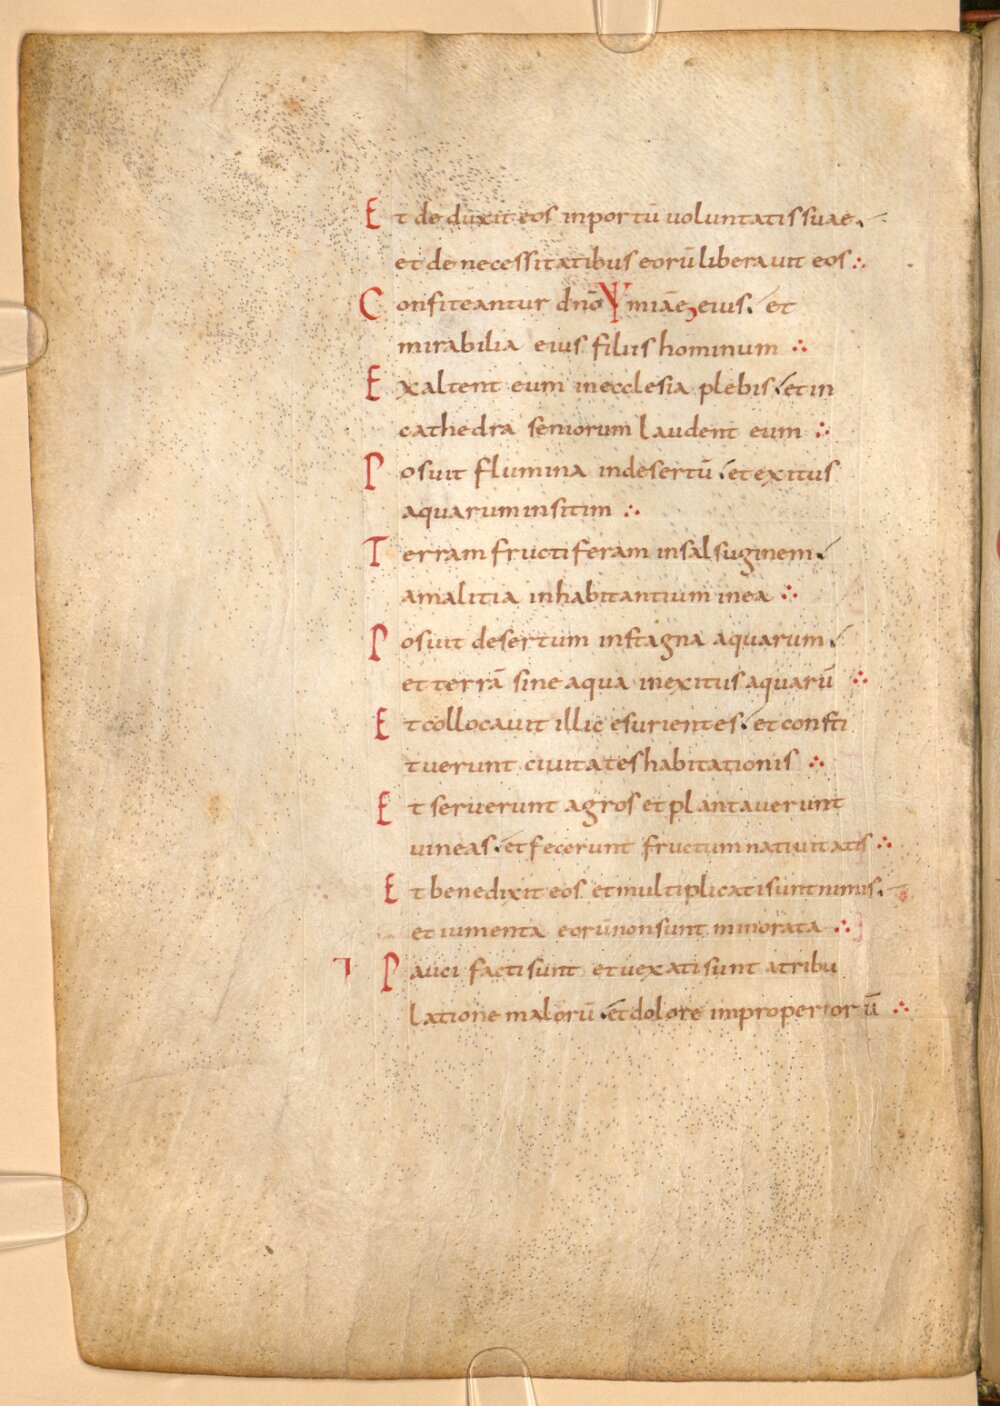 Et de duxit eos inportū uoluntatis suae.
et de necessitatibus eorū liberauit eos ∴
Confiteantur dn̄o miāe eius. et
mirabilia eius filiis hominum ∴
Exaltent eum inecclesia plebis. et in
cathedra seniorum laudent eum ∴
Posuit flumina indesertū. et exitus
aquarum insitim ∴
Terram fructiferam insalsuginem.
amalitia inhabitantium inea ∴
Posuit desertum instagna aquarum.
et terrā sine aqua inexitus aquarū ∴
Et collocauit illic esurientes. et consti
tuerunt ciuitates habitationis ∴
Et seruerunt agros et plantauerunt
uineas. et fecerunt fructum natiuitatis ∴
Et benedixit eos et multiplicati sunt nimis.
et iumenta eorū non sunt minorata ∴
Pauci facti sunt et uexati sunt atribu
latione malorū. et dolore improperiorū ∴